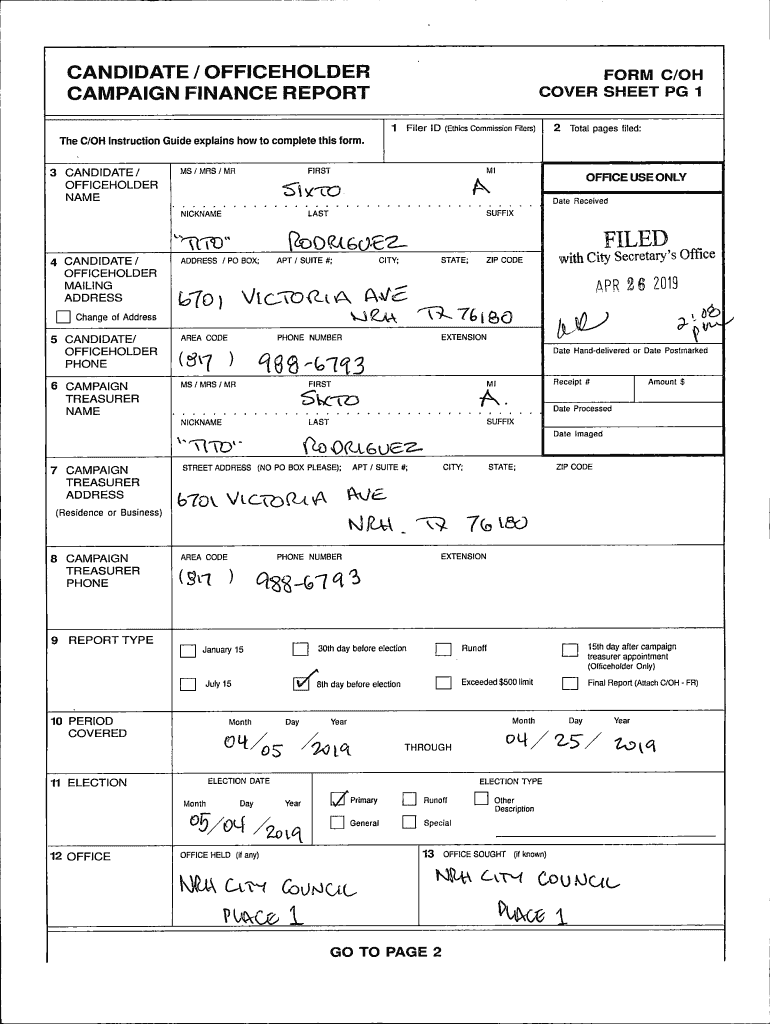 CANDIDATE / OFFICEHOLDER
CAMPAIGN FINANCE REPORT
FORM C/OH
COVER SHEET PG 1
The C/OH Instruction Guide explains how to complete this form.
1 Filer ID (Ethics Commission Filers)
2 Total pages filed:
3 CANDIDATE /
OFFICEHOLDER
NAME
MS / MRS / MR FIRST MI
SIXTO A
NICKNAME LAST SUFFIX
"TITO" RODRIGUEZ
OFFICE USE ONLY
Date Received
FILED
with City Secretary's Office
APR 26 2019
2:08
pm
4 CANDIDATE /
OFFICEHOLDER
MAILING
ADDRESS
Change of Address
ADDRESS / PO BOX; APT / SUITE #; CITY; STATE; ZIP CODE
6701 VICTORIA AVE
NRH TX 76180
5 CANDIDATE/
OFFICEHOLDER
PHONE
AREA CODE PHONE NUMBER EXTENSION
(817 ) 988-6793
Date Hand-delivered or Date Postmarked
Receipt # Amount $
Date Processed
Date Imaged
6 CAMPAIGN
TREASURER
NAME
MS / MRS / MR FIRST MI
SIXTO A.
NICKNAME LAST SUFFIX
"TITO" RODRIGUEZ
7 CAMPAIGN
TREASURER
ADDRESS
(Residence or Business)
STREET ADDRESS (NO PO BOX PLEASE); APT / SUITE #; CITY; STATE; ZIP CODE
6701 VICTORIA AVE
NRH. TX 76180
8 CAMPAIGN
TREASURER
PHONE
AREA CODE PHONE NUMBER EXTENSION
(817 ) 988-6793
9 REPORT TYPE
January 15 30th day before election Runoff 15th day after campaign
treasurer appointment
(Officeholder Only)
July 15 8th day before election Exceeded $500 limit Final Report (Attach C/OH - FR)
10 PERIOD
COVERED
Month Day Year Month Day Year
04/05/2019 THROUGH 04/25/2019
11 ELECTION
ELECTION DATE ELECTION TYPE
Month Day Year
05/04/2019
Primary Runoff Other
Description
General Special
12 OFFICE
OFFICE HELD (if any)
NRH CITY COUNCIL
PLACE 1
13 OFFICE SOUGHT (if known)
NRH CITY COUNCIL
PLACE 1
GO TO PAGE 2